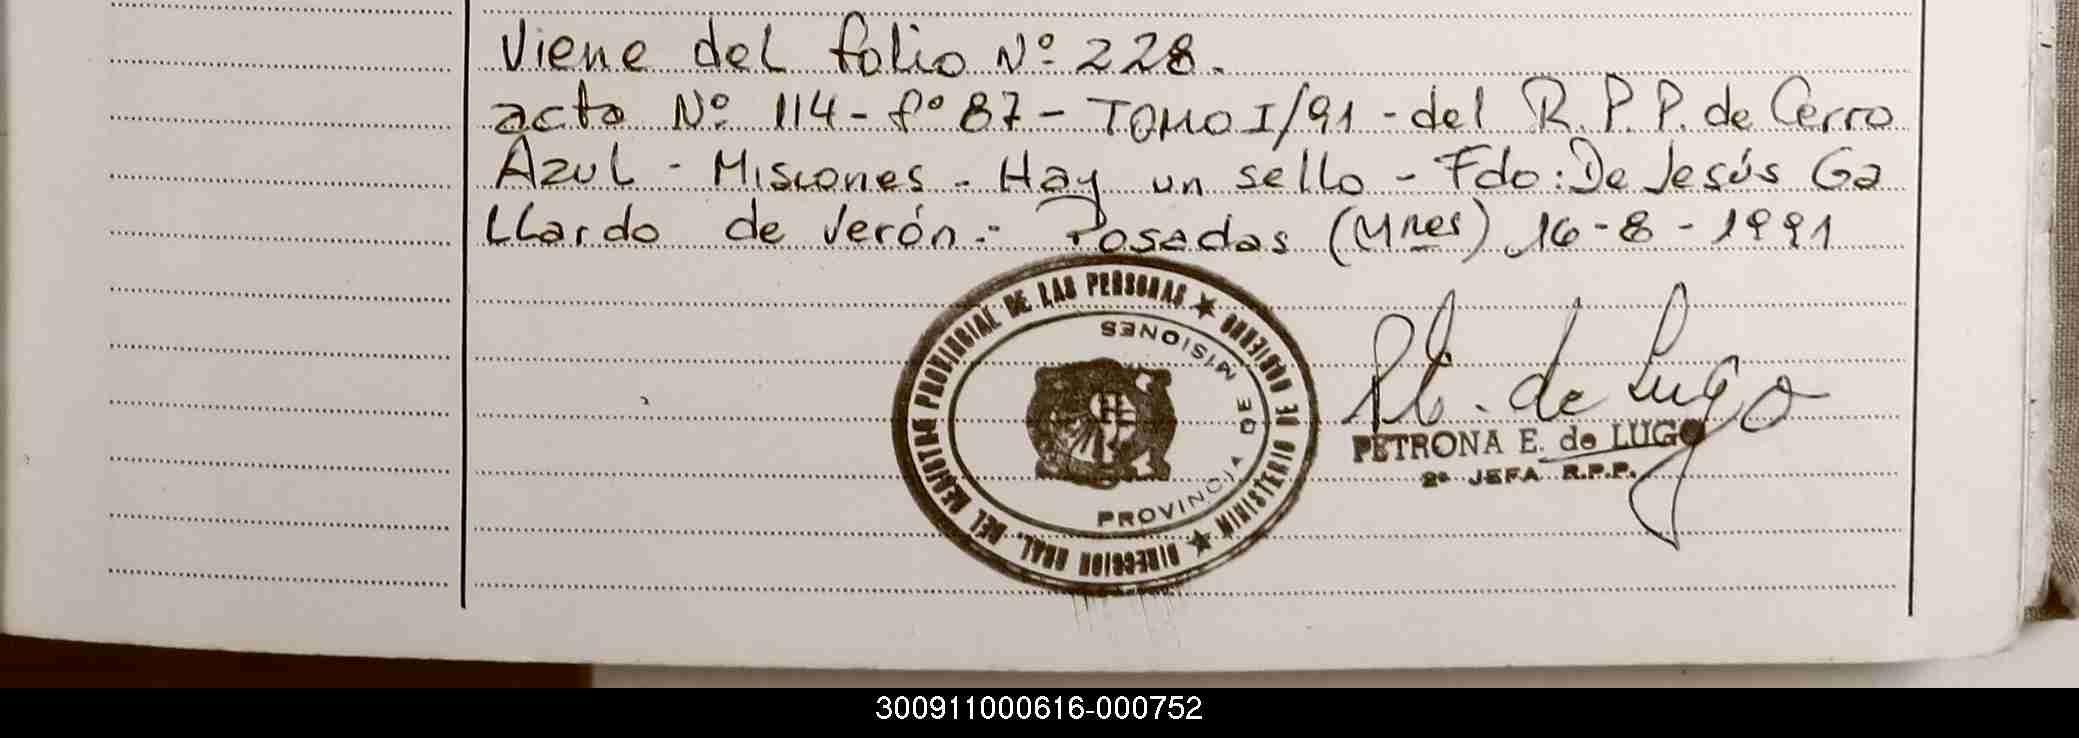 Viene del folio Nº 228.
acta Nº 114 - fº 87 - TOMO I/91 - del R.P.P. de Cerro
Azul - Misiones - Hay un sello - Fdo: De Jesús Ga
llardo de Verón.- Posadas (Mnes) 16-8-1991
DIRECCION GRAL. DEL REGISTRO PROVINCIAL DE LAS PERSONAS ★ MINISTERIO DE GOBIERNO ★
PROVINCIA DE MISIONES
de Lugo
PETRONA E. de LUGO
2ª JEFA R.P.P.
300911000616-000752